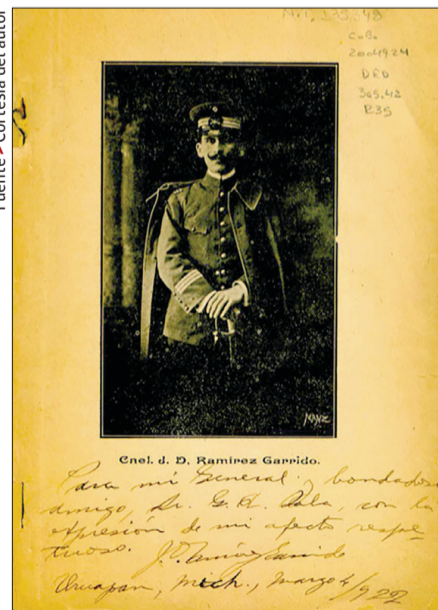 Fuente > Cortesía del autor
C.B.
2004924
DED
365.42
R35
Cnel. J. D. Ramírez Garrido.
Para mi General y bondadoso
amigo, Sr. G. A. con la
expresión de mi afecto respe
tuoso.
J. D. Ramírez Garrido
Uruapan, Mich., Marzo 4/922